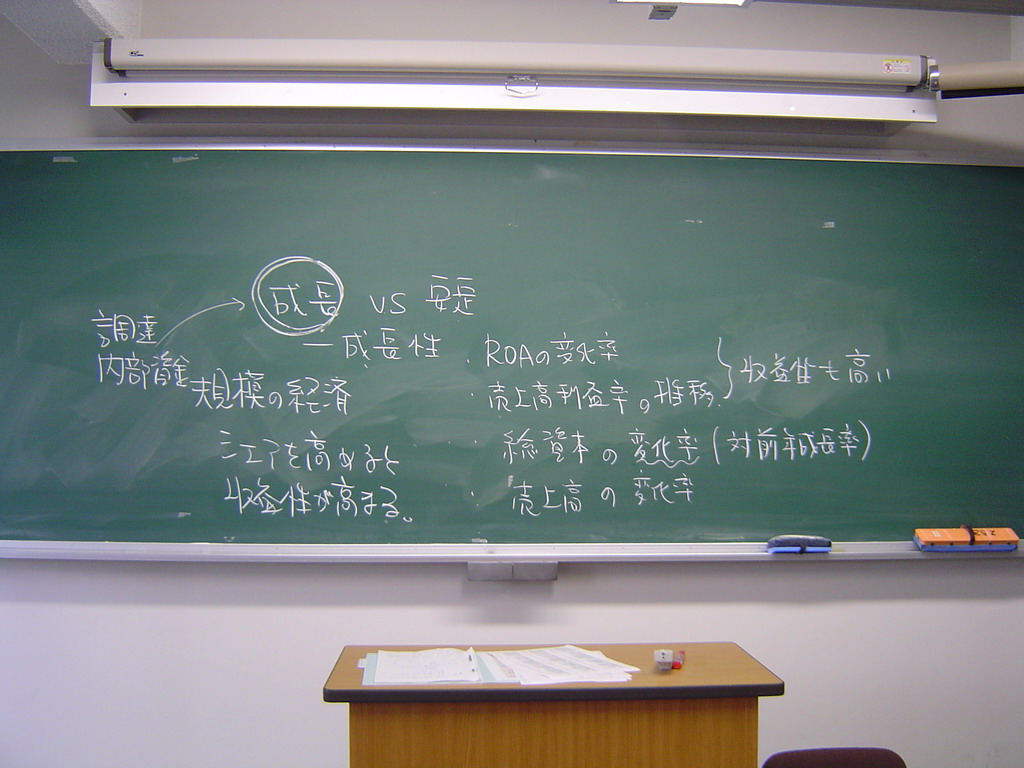 成長 vs 安定
調達
内部留保
規模の経済
シェアを高めると
収益性が高まる。
ー成長性
・ROAの変化率
・売上高利益率の推移
収益性も高い
・総資本の変化率(対前年成長率)
・売上高の変化率